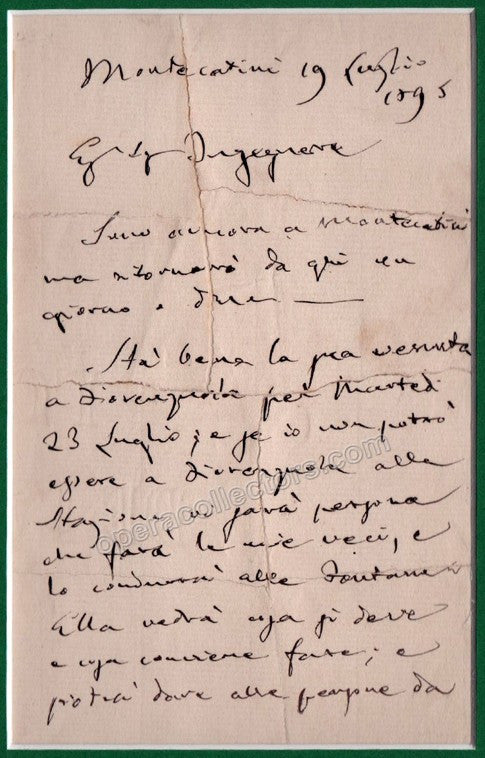 Montecatini 19 Luglio
1895
Eg. Sg. Ingegnere
Sono ancora a Montecatini
ma ritornerò da qui un
giorno o due
Stà bene la sua venuta
a Fiorenzuola per Martedì
23 Luglio; e se io non potrò
essere a Fiorenzuola alla
Stazione vi sarà persona
che farà le mie veci, e
lo condurrà alle
Ella vedrà cosa si deve
e cosa conviene fare; e
potrà dare alle persone da
operacollectors.com